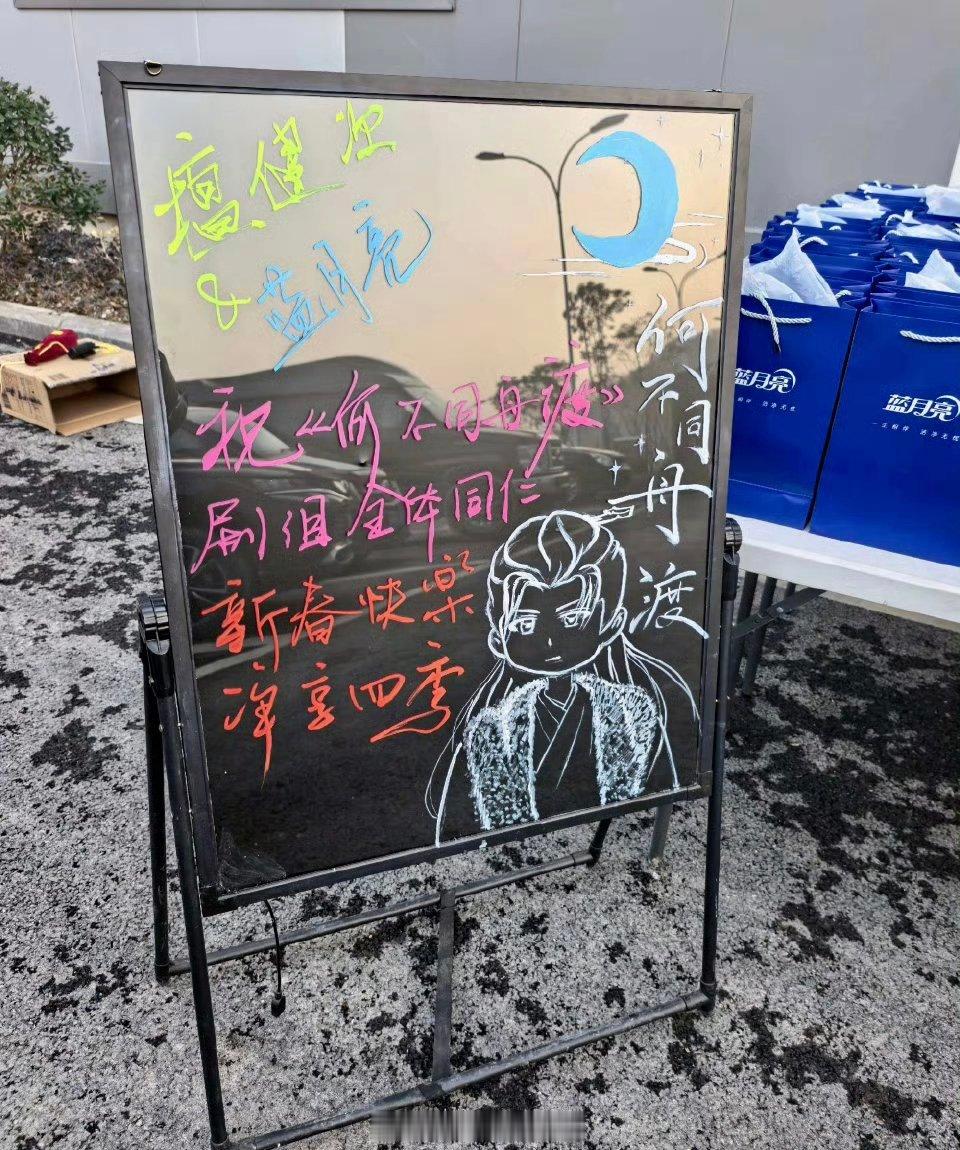 檀健次
&蓝月亮
祝《何不同舟渡》
剧组全体同仁
新春快樂
净享四季
何不同舟渡
蓝月亮
蓝月亮